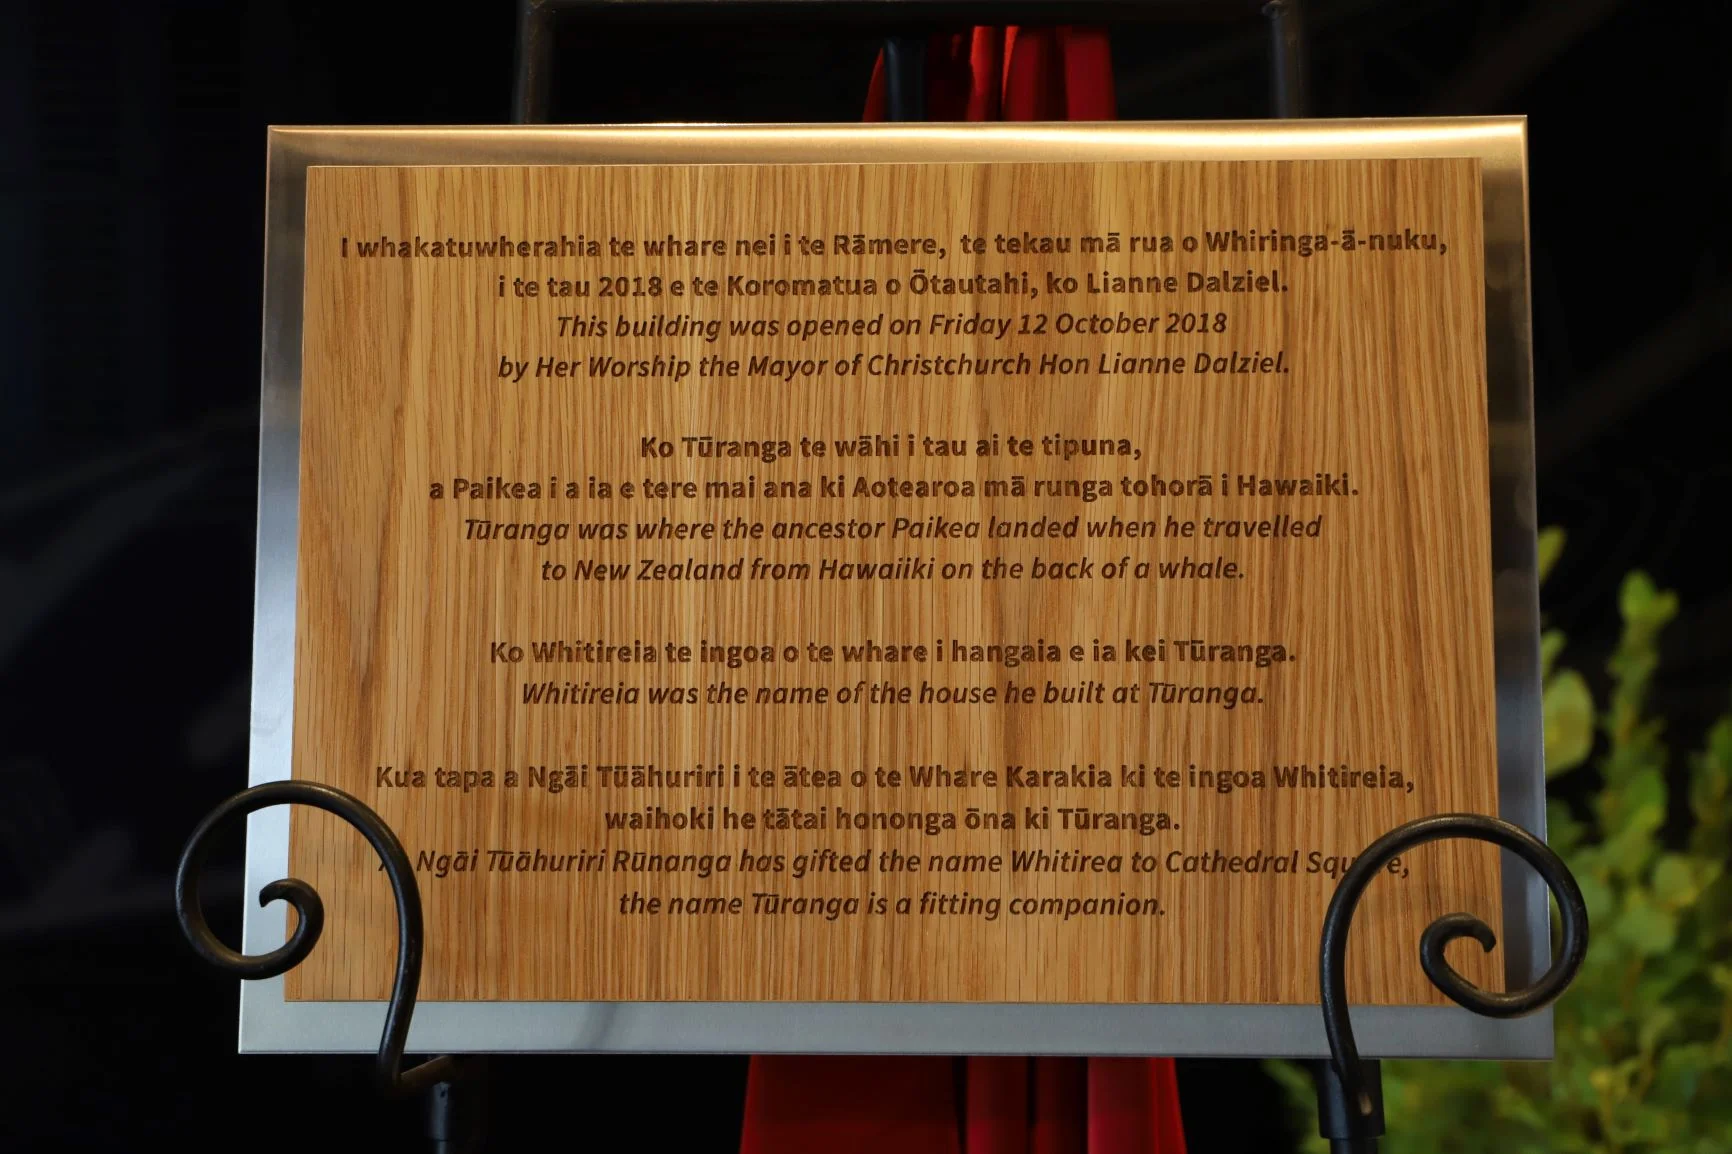 I whakatuwherahia te whare nei i te Rāmere, te tekau mā rua o Whiringa-ā-nuku,
i te tau 2018 e te Koromatua o Ōtautahi, ko Lianne Dalziel.
This building was opened on Friday 12 October 2018
by Her Worship the Mayor of Christchurch Hon Lianne Dalziel.
Ko Tūranga te wāhi i tau ai te tipuna,
a Paikea i a ia e tere mai ana ki Aotearoa mā runga tohorā i Hawaiki.
Tūranga was where the ancestor Paikea landed when he travelled
to New Zealand from Hawaiiki on the back of a whale.
Ko Whitireia te ingoa o te whare i hangaia e ia kei Tūranga.
Whitireia was the name of the house he built at Tūranga.
Kua tapa a Ngāi Tūāhuriri i te ātea o te Whare Karakia ki te ingoa Whitireia,
waihoki he tātai hononga ōna ki Tūranga.
Ngāi Tūāhuriri Rūnanga has gifted the name Whitirea to Cathedral Square,
the name Tūranga is a fitting companion.